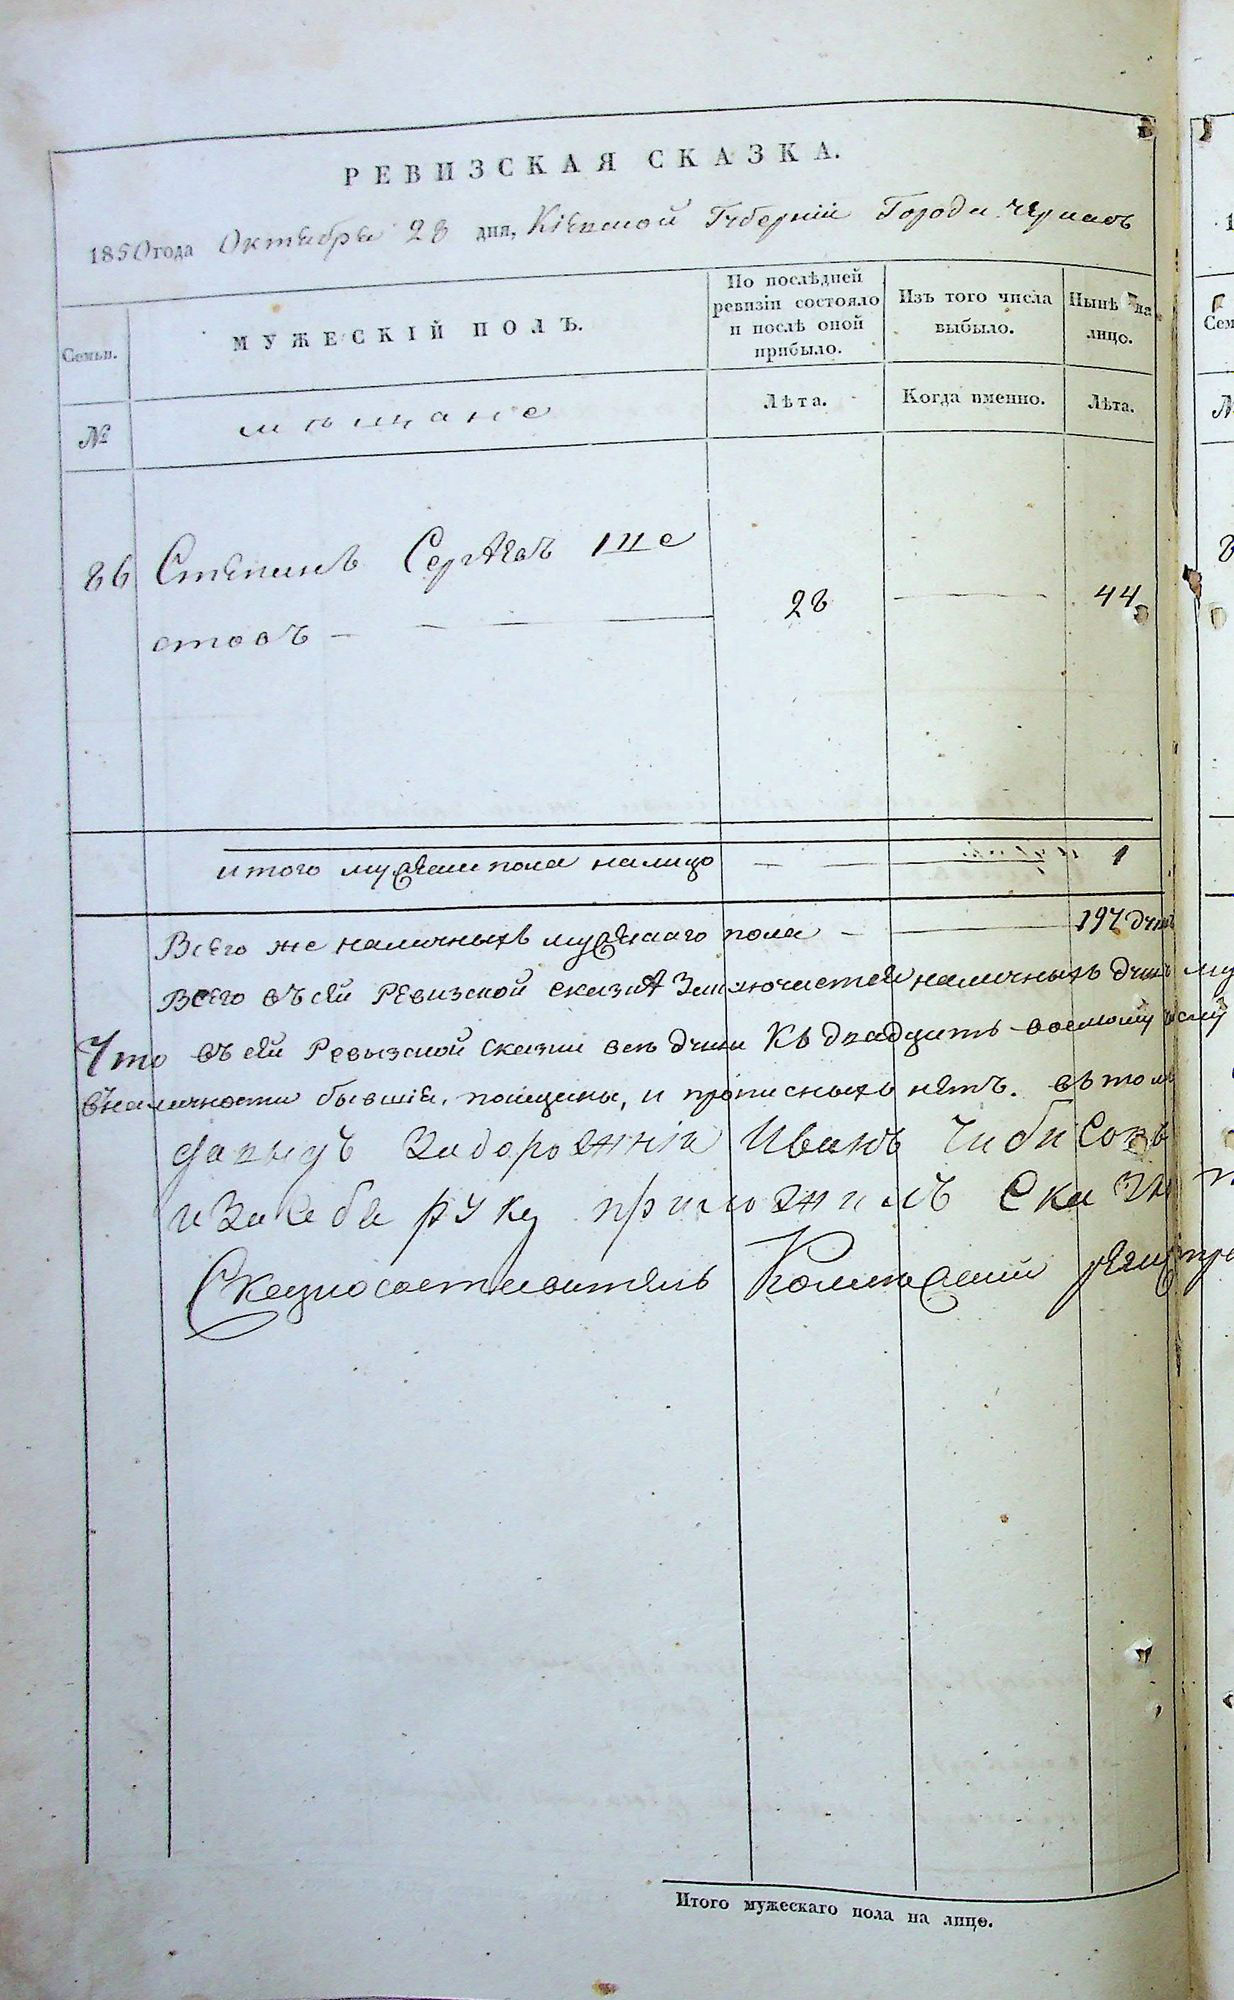 РЕВИЗСКАЯ СКАЗКА.
1850 года Октября 28 дня, Кіевской Губерніи Города Черкасъ
Семьи.
МУЖЕСКІЙ ПОЛЪ.
По послѣдней ревизіи состояло и послѣ оной прибыло.
Изъ того числа выбыло.
Нынѣ на лицо.
№
мѣщане
Лѣта.
Когда именно.
Лѣта.
86 Степанъ Сергѣевъ Ше
стовъ
28
44
итого мужеска пола налицо 1
Всего же наличныхъ мужескаго пола 197 душъ
Всего въ сей Ревизской сказкѣ Заключается наличныхъ душъ му
Что въ сей Ревызской сказки всѣ души Къ двадцать восмому
въ наличности бывшіе, помѣщены, и прописныхъ нѣтъ. въ томъ
давыдъ Задорожній Иванъ Чибисовъ
и За себя руку приложилъ
Сказкосоставитель Колежской регистра
Итого мужескаго пола на лице.